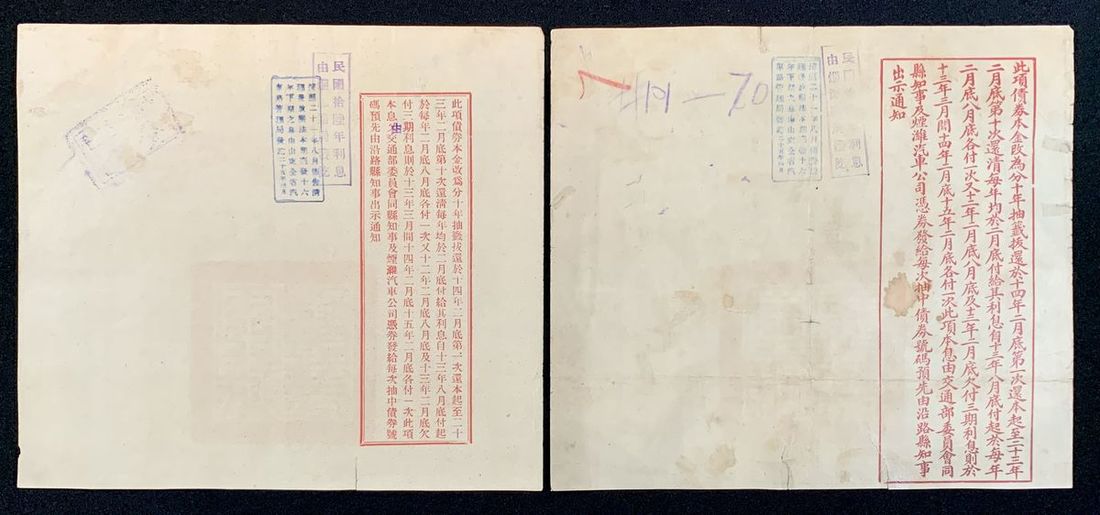 民國拾陸年利息
此項債券本金改爲分十年抽籤拔還於十四年二月底第一次還本起至二十
三年二月底第十次還清每年均於二月底付給其利息自十三年八月底付起
於每年二月底八月底各付一次又十二年二月底八月底及十三年二月底欠
付三期利息則於十三年三月間十四年二月底十五年二月底各付一次此項
本息由交通部委員會同縣知事及煙濰汽車公司憑券發給每次抽中債券號
碼預先由沿路縣知事出示通知
此項債券本金改為分十年抽籤拔還於十四年二月底第一次還本起至二十三年
二月底第十次還清每年均於二月底付給其利息自十三年八月底付起於每年
二月底八月底各付一次又十二年二月底八月底及十三年二月底欠付三期利息則於
十三年三月間十四年二月底十五年二月底各付一次此項本息由交通部委員會同
縣知事及煙濰汽車公司憑券發給每次抽中債券號碼預先由沿路縣知事
出示通知